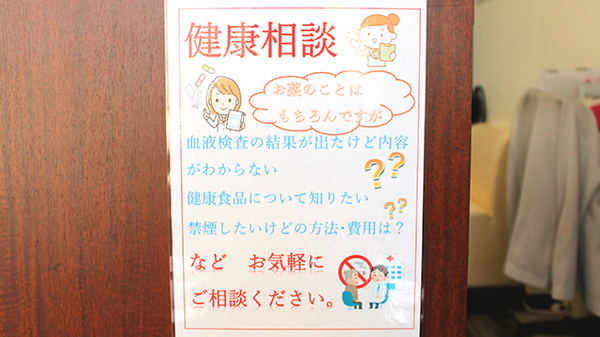 健康相談
お薬のことは
もちろんですが
血液検査の結果が出たけど内容
がわからない
健康食品について知りたい
禁煙したいけどの方法・費用は？
など　お気軽に
ご相談ください。